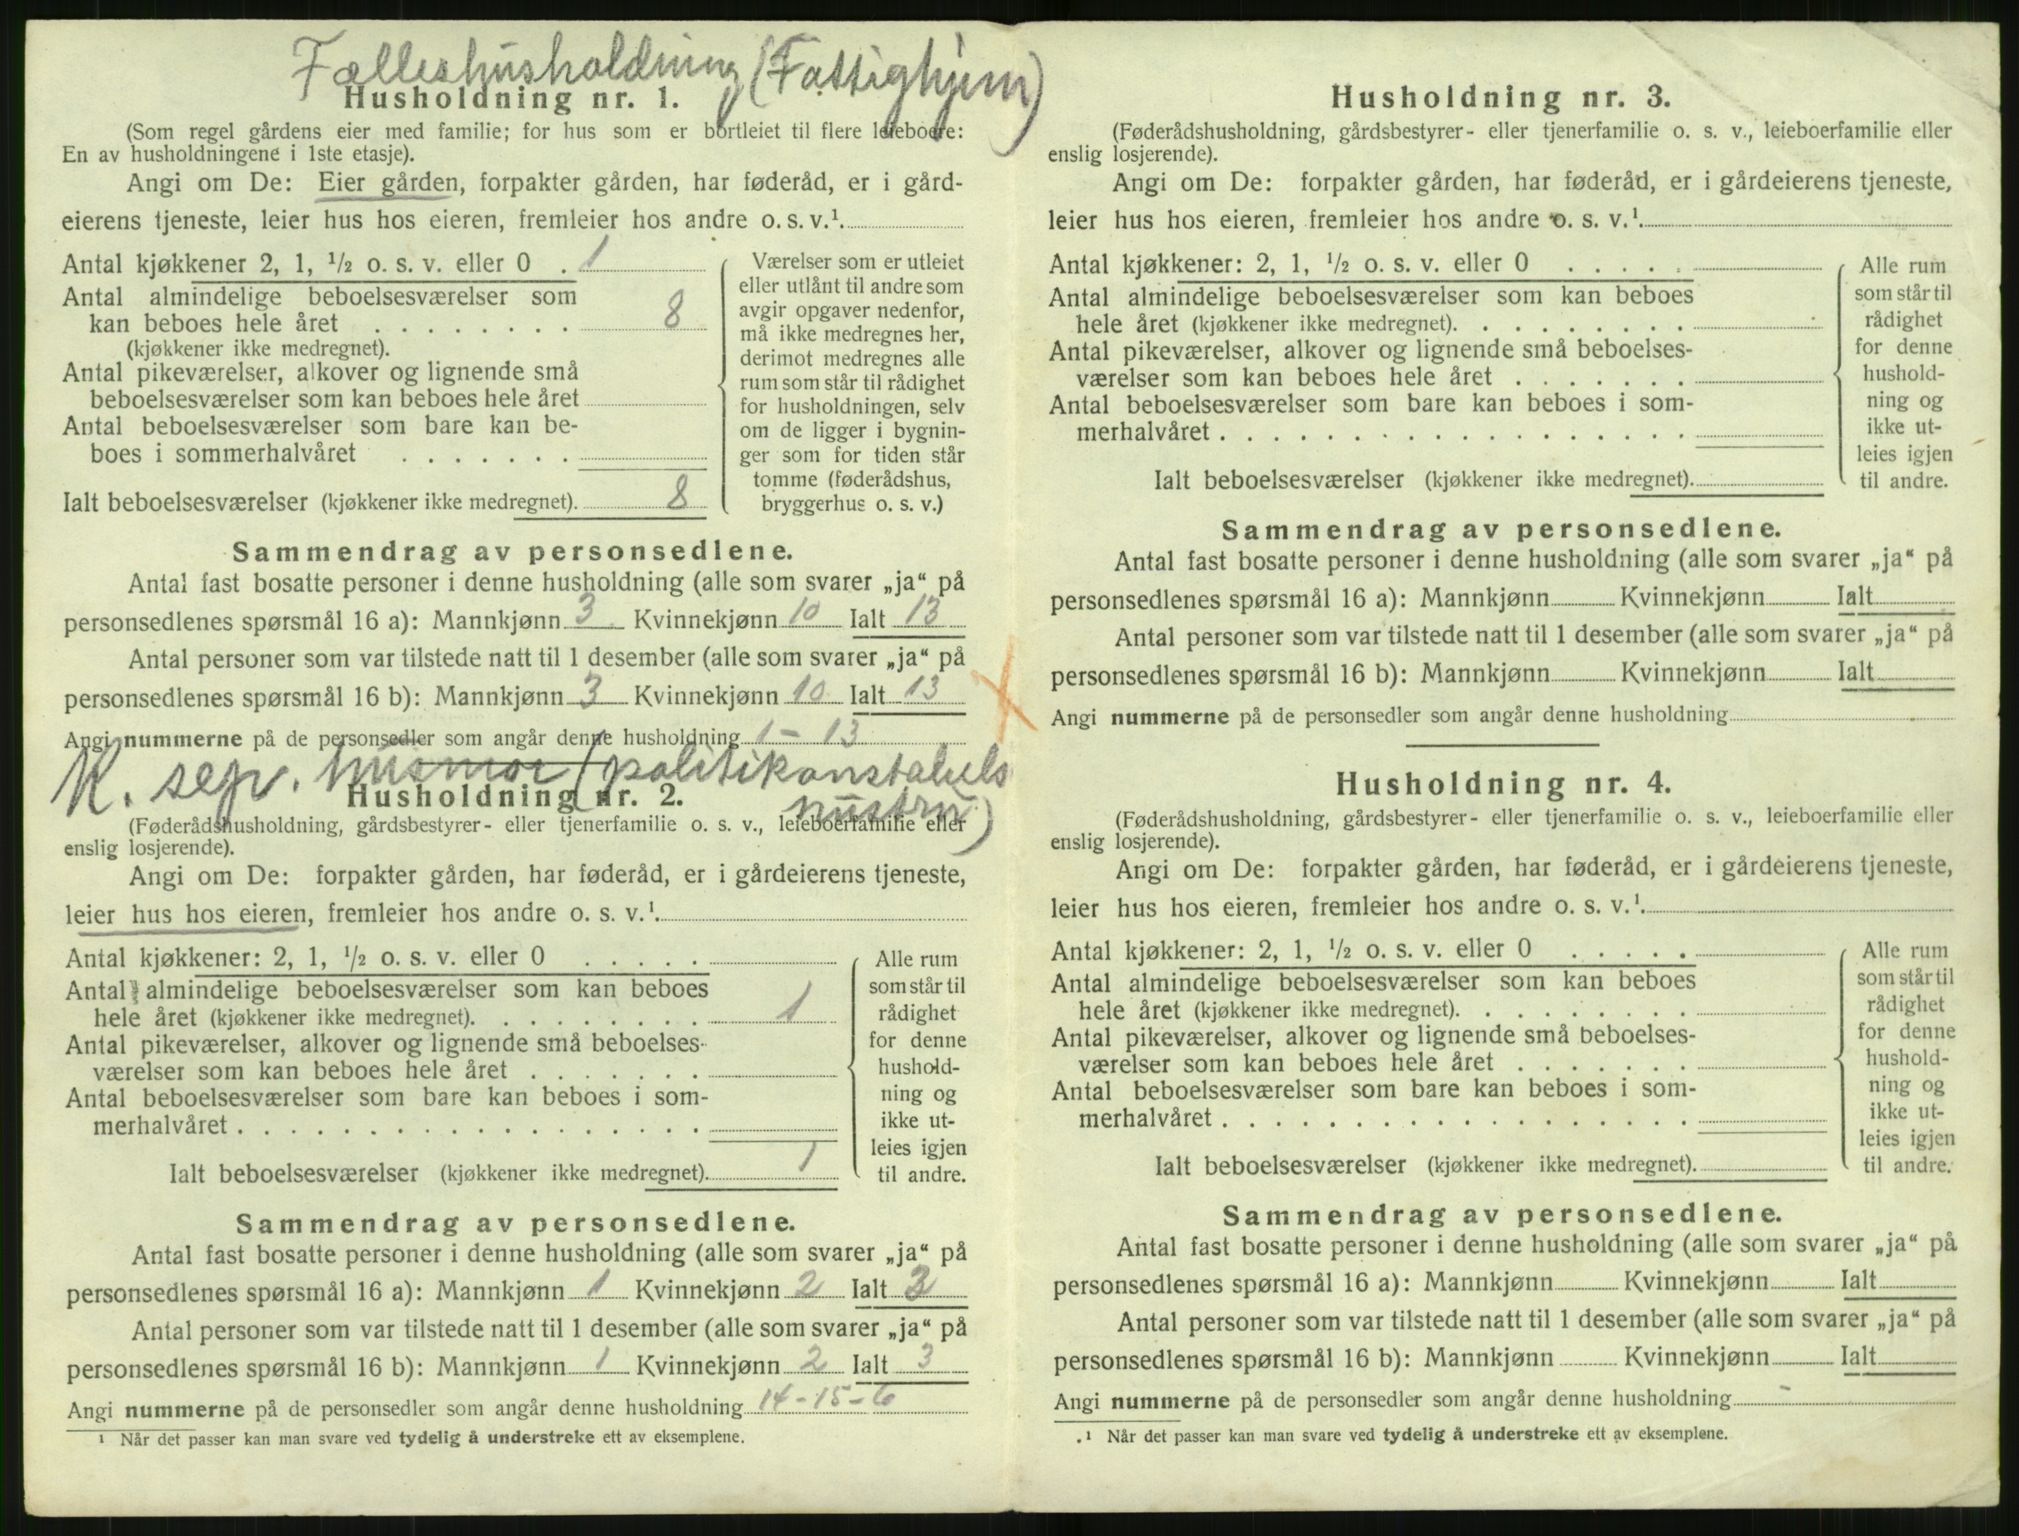 Fælleshusholdning (Fattighjem)
Husholdning nr. 1.
(Som regel gårdens eier med familie; for hus som er bortleiet til flere leieboere:
En av husholdningene i 1ste etasje).
Angi om De: Eier gården, forpakter gården, har føderåd, er i gård-
eierens tjeneste, leier hus hos eieren, fremleier hos andre o. s. v.¹.
Antal kjøkkener 2, 1, ½ o. s. v. eller 0 . 1
Antal almindelige beboelsesværelser som
kan beboes hele året . . . . . . . . 8
(kjøkkener ikke medregnet).
Antal pikeværelser, alkover og lignende små
beboelsesværelser som kan beboes hele året
Antal beboelsesværelser som bare kan be-
boes i sommerhalvåret . . . . . . .
Ialt beboelsesværelser (kjøkkener ikke medregnet). 8
Værelser som er utleiet
eller utlånt til andre som
avgir opgaver nedenfor,
må ikke medregnes her,
derimot medregnes alle
rum som står til rådighet
for husholdningen, selv
om de ligger i bygnin-
ger som for tiden står
tomme (føderådshus,
bryggerhus o. s. v.)
Sammendrag av personsedlene.
Antal fast bosatte personer i denne husholdning (alle som svarer „ja“ på
personsedlenes spørsmål 16 a): Mannkjønn 3 Kvinnekjønn 10 Ialt 13
Antal personer som var tilstede natt til 1 desember (alle som svarer „ja“ på
personsedlenes spørsmål 16 b): Mannkjønn 3 Kvinnekjønn 10 Ialt 13
Angi nummerne på de personsedler som angår denne husholdning 1 - 13
K. sep. husmor (politikonstabels
hustru)
Husholdning nr. 2.
(Føderådshusholdning, gårdsbestyrer- eller tjenerfamilie o. s. v., leieboerfamilie eller
enslig losjerende).
Angi om De: forpakter gården, har føderåd, er i gårdeierens tjeneste,
leier hus hos eieren, fremleier hos andre o. s. v.¹.
Antal kjøkkener: 2, 1, ½ o. s. v. eller 0 . . . . .
Antal almindelige beboelsesværelser som kan beboes
hele året (kjøkkener ikke medregnet). . . . . . . . . 1
Antal pikeværelser, alkover og lignende små beboelses-
værelser som kan beboes hele året . . . . . . .
Antal beboelsesværelser som bare kan beboes i som-
merhalvåret . . . . . . . . . . . . . . . . . .
Ialt beboelsesværelser (kjøkkener ikke medregnet). 1
Alle rum
som står til
rådighet
for denne
hushold-
ning og
ikke ut-
leies igjen
til andre.
Sammendrag av personsedlene.
Antal fast bosatte personer i denne husholdning (alle som svarer „ja“ på
personsedlenes spørsmål 16 a): Mannkjønn 1 Kvinnekjønn 2 Ialt 3
Antal personer som var tilstede natt til 1 desember (alle som svarer „ja“ på
personsedlenes spørsmål 16 b): Mannkjønn 1 Kvinnekjønn 2 Ialt 3
Angi nummerne på de personsedler som angår denne husholdning 14-15-6
¹ Når det passer kan man svare ved tydelig å understreke ett av eksemplene.
Husholdning nr. 3.
(Føderådshusholdning, gårdsbestyrer- eller tjenerfamilie o. s. v., leieboerfamilie eller
enslig losjerende).
Angi om De: forpakter gården, har føderåd, er i gårdeierens tjeneste,
leier hus hos eieren, fremleier hos andre o. s. v.¹.
Antal kjøkkener: 2, 1, ½ o. s. v. eller 0 . . . . .
Antal almindelige beboelsesværelser som kan beboes
hele året (kjøkkener ikke medregnet). . . . . . . . .
Antal pikeværelser, alkover og lignende små beboelses-
værelser som kan beboes hele året . . . . . . .
Antal beboelsesværelser som bare kan beboes i som-
merhalvåret . . . . . . . . . . . . . . . . . .
Ialt beboelsesværelser (kjøkkener ikke medregnet).
Alle rum
som står til
rådighet
for denne
hushold-
ning og
ikke ut-
leies igjen
til andre.
Sammendrag av personsedlene.
Antal fast bosatte personer i denne husholdning (alle som svarer „ja“ på
personsedlenes spørsmål 16 a): Mannkjønn Kvinnekjønn Ialt
Antal personer som var tilstede natt til 1 desember (alle som svarer „ja“ på
personsedlenes spørsmål 16 b): Mannkjønn Kvinnekjønn Ialt
Angi nummerne på de personsedler som angår denne husholdning
Husholdning nr. 4.
(Føderådshusholdning, gårdsbestyrer- eller tjenerfamilie o. s. v., leieboerfamilie eller
enslig losjerende).
Angi om De: forpakter gården, har føderåd, er i gårdeierens tjeneste,
leier hus hos eieren, fremleier hos andre o. s. v.¹.
Antal kjøkkener: 2, 1, ½ o. s. v. eller 0 . . . . .
Antal almindelige beboelsesværelser som kan beboes
hele året (kjøkkener ikke medregnet). . . . . . . . .
Antal pikeværelser, alkover og lignende små beboelses-
værelser som kan beboes hele året . . . . . . .
Antal beboelsesværelser som bare kan beboes i som-
merhalvåret . . . . . . . . . . . . . . . . . .
Ialt beboelsesværelser (kjøkkener ikke medregnet).
Alle rum
som står til
rådighet
for denne
hushold-
ning og
ikke ut-
leies igjen
til andre.
Sammendrag av personsedlene.
Antal fast bosatte personer i denne husholdning (alle som svarer „ja“ på
personsedlenes spørsmål 16 a): Mannkjønn Kvinnekjønn Ialt
Antal personer som var tilstede natt til 1 desember (alle som svarer „ja“ på
personsedlenes spørsmål 16 b): Mannkjønn Kvinnekjønn Ialt
Angi nummerne på de personsedler som angår denne husholdning
¹ Når det passer kan man svare ved tydelig å understreke ett av eksemplene.